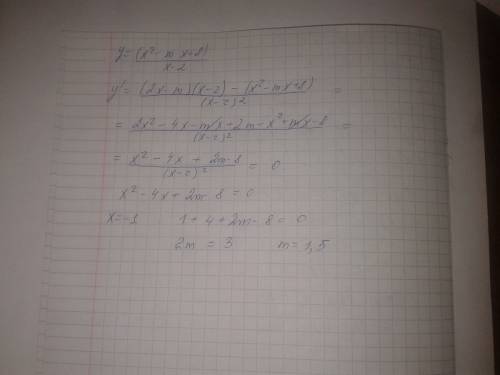 y = (x² - m x + 8) / x - 2
y' = (2x - m)(x - 2) - (x² - mx + 8) / (x - 2)² =
= 2x² - 4x - mx + 2m - x² + mx - 8 / (x - 2)² =
= x² - 4x + 2m - 8 / (x - 2)² = 0
x² - 4x + 2m - 8 = 0
x = -1 1 + 4 + 2m - 8 = 0
2m = 3 m = 1,5